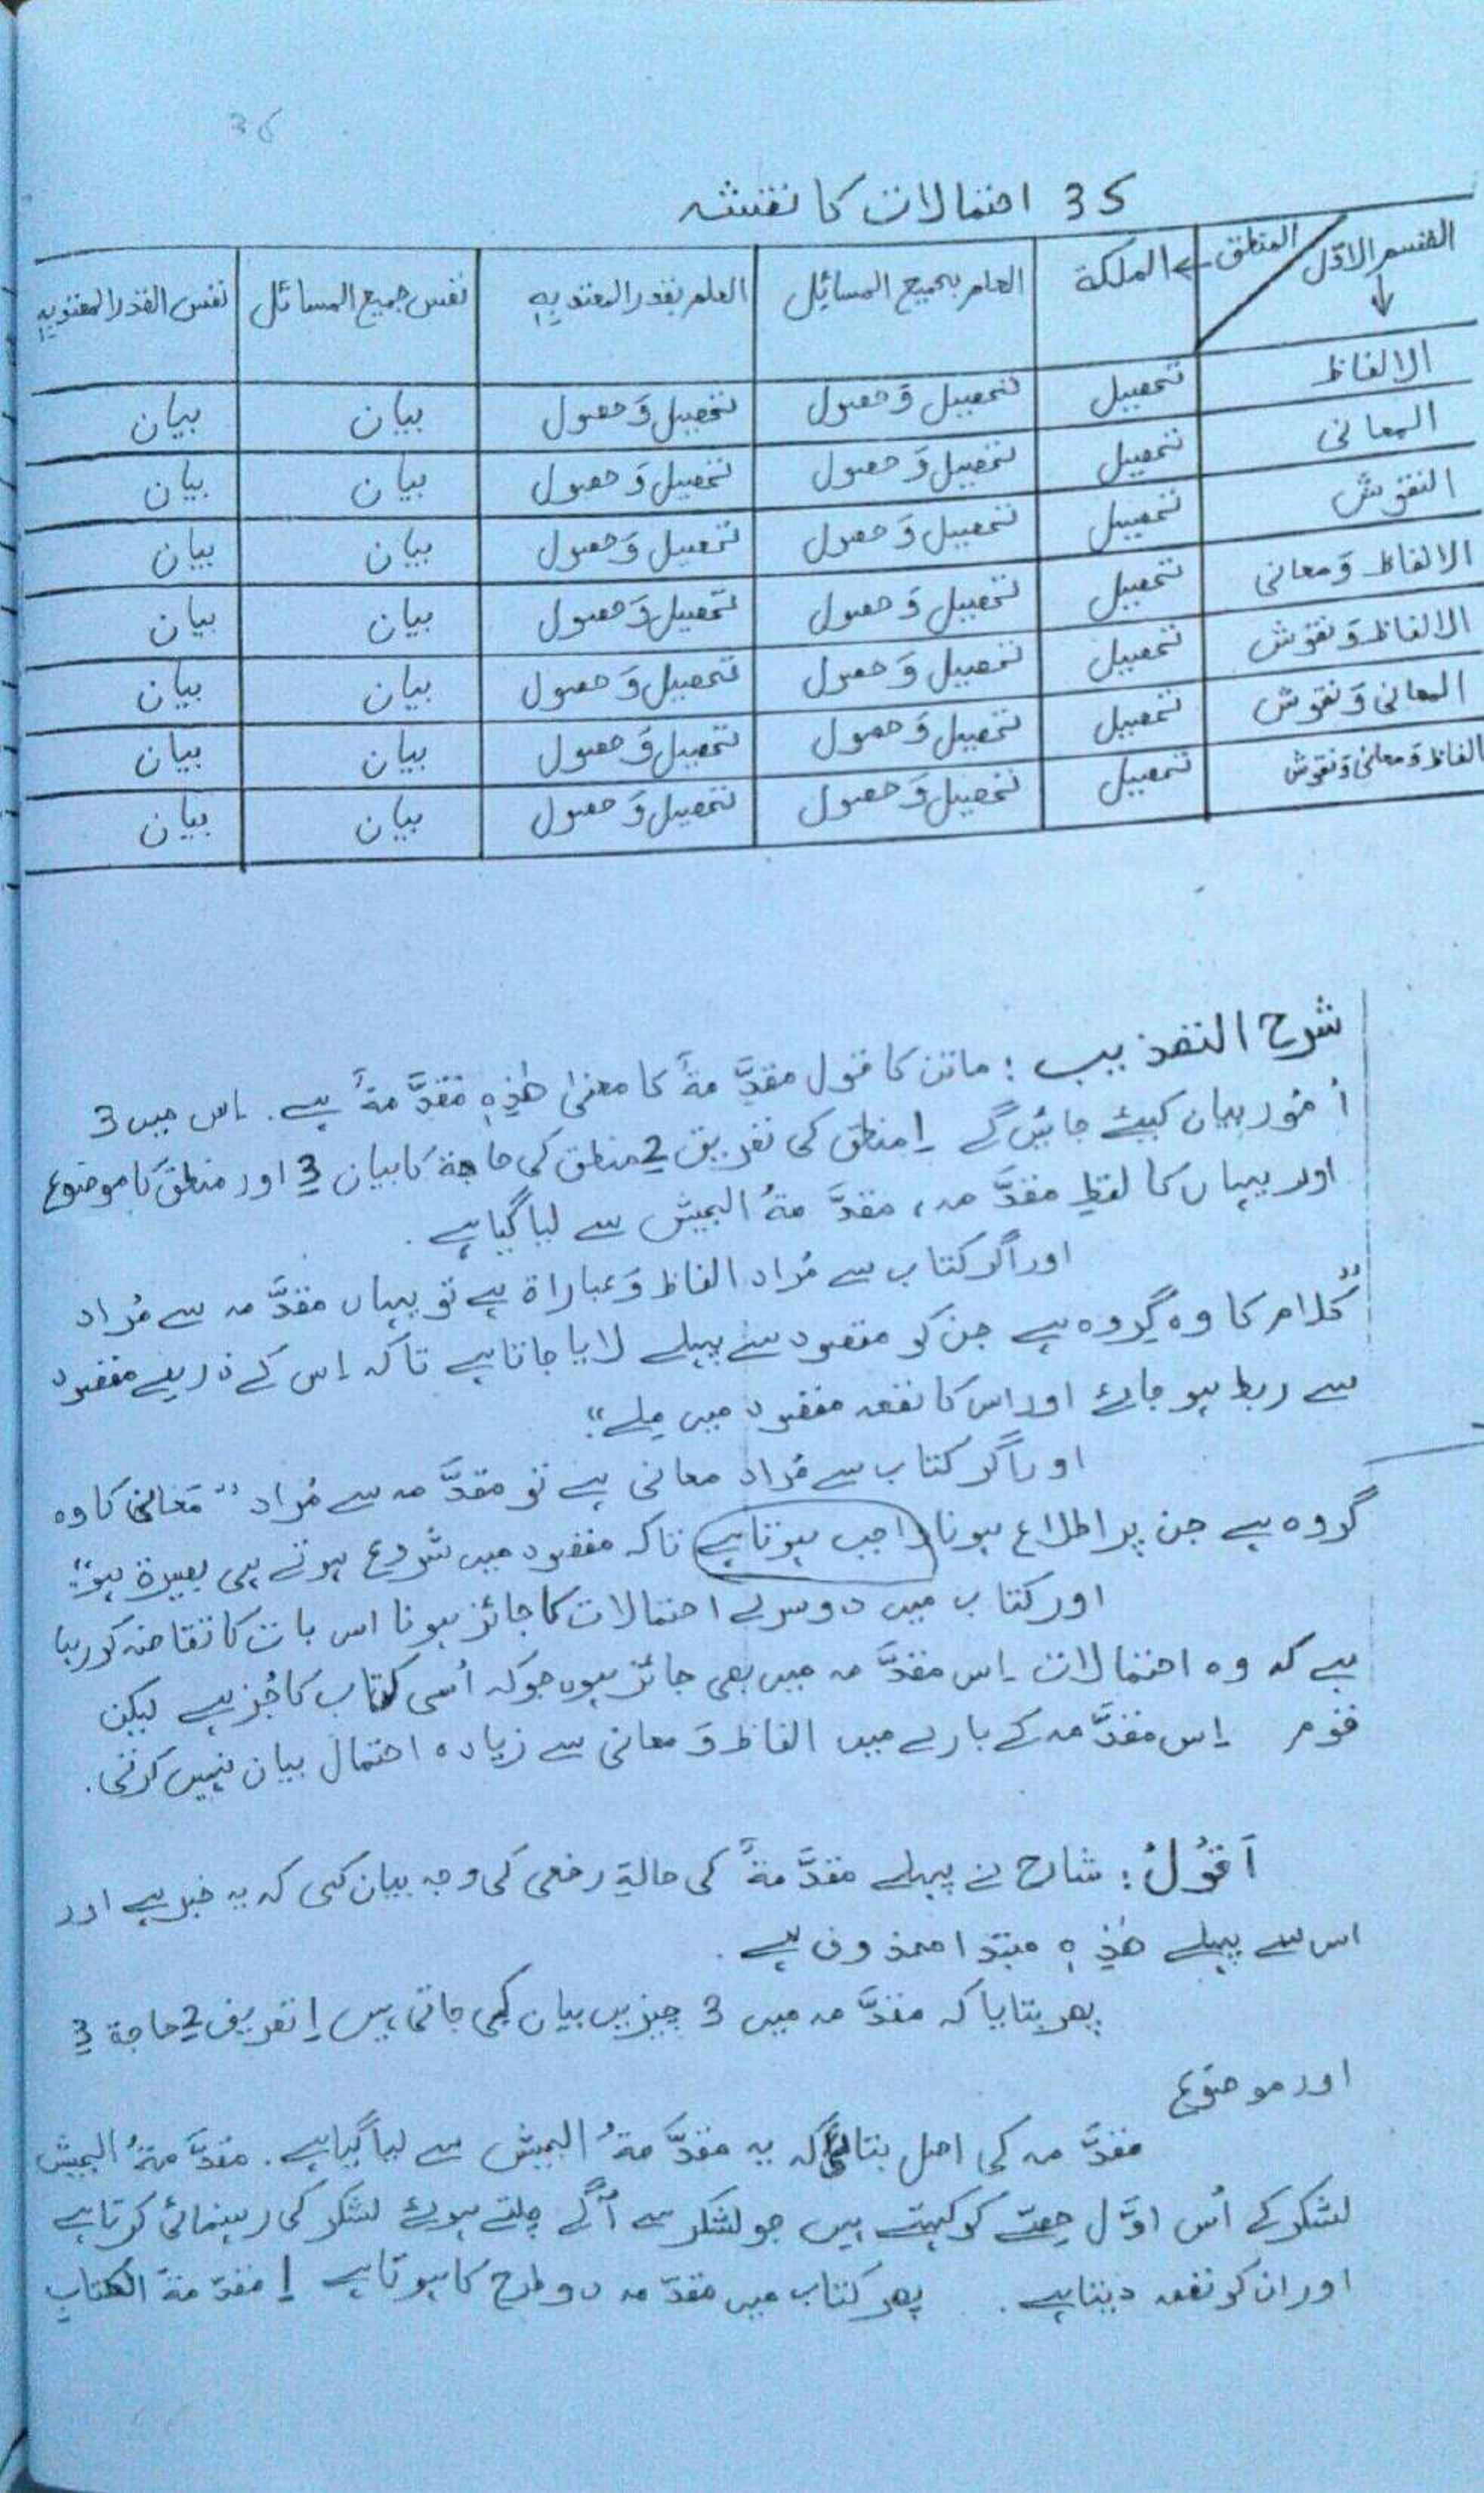 36
35 احتمالات کا نقشہ
القسم الاوّل ↓ / المنطق ← الملکة العلم بجمیع المسائل العلم بقدر المعتد بہٖ نفس جمیع المسائل نفس القدر المعتد بہٖ
الالفاظ تحصیل تحصیل وَ حصول تحصیل وَ حصول بیان بیان
المعانی تحصیل تحصیل وَ حصول تحصیل وَ حصول بیان بیان
النقوش تحصیل تحصیل وَ حصول تحصیل وَ حصول بیان بیان
الالفاظ وَ معانی تحصیل تحصیل وَ حصول تحصیل وَ حصول بیان بیان
الالفاظ وَ نقوش تحصیل تحصیل وَ حصول تحصیل وَ حصول بیان بیان
المعانی وَ نقوش تحصیل تحصیل وَ حصول تحصیل وَ حصول بیان بیان
الفاظ وَ معانی وَ نقوش تحصیل تحصیل وَ حصول تحصیل وَ حصول بیان بیان
شرح التھذیب : ماتن کا قول مقدَّمةٌ کا معنیٰ ھٰذِہٖ مُقَدَّمةٌ ہے۔ اِس میں 3
اُمُور بیان کیئے جائیں گے 1 منطق کی تعریف 2 منطق کی حاجة کا بیان 3 اور منطق کا موضوع
اور یہاں کا لفظِ مقدَّمہ ، مقدَّمةُ الجیش سے لیا گیا ہے ۔
اور اگر کتاب سے مُراد الفاظ وَ عباراة ہے تو یہاں مقدَّمہ سے مُراد
”کلام کا وہ گروہ ہے جن کو مقصود سے پہلے لایا جاتا ہے تاکہ اِس کے ذریعے مقصود
سے ربط ہو جائے اور اس کا نفعہ مقصود میں مِلے“
اور اگر کتاب سے مُراد معانی ہے تو مقدَّمہ سے مُراد ”مَعانی کا وہ
گروہ ہے جن پر اطلاع ہونا واجب ہوتا ہے تاکہ مقصود میں شروع ہوتے ہی بصیرة ہو“
اور کتاب میں دوسرے احتمالات کا جائز ہونا اس بات کا تقاضہ کو رہا
ہے کہ وہ احتمالات اِس مقدَّمہ میں بھی جائز ہوں جو کہ اُسی کتاب کا جُز ہے لیکن
قوم اِس مقدَّمہ کے بارے میں الفاظ وَ معانی سے زیادہ احتمال بیان نہیں کرتی۔
اَقُوْلُ : شارح نے پہلے مقدَّمةٌ کی حالةِ رفعی کی وجہ بیان کی کہ یہ خبر ہے اور
اس سے پہلے ھٰذِہٖ مبتدا محذوف ہے ۔
پھر بتایا کہ مقدَّمہ میں 3 چیزیں بیان کی جاتی ہیں 1 تعریف 2 حاجة 3
اور موضوع
مقدَّمہ کی اصل بتائی کہ یہ مقدَّمةُ الجیش سے لیا گیا ہے۔ مقدَّمةُ الجیش
لشکر کے اُس اوَّل حصّے کو کہتے ہیں جو لشکر سے آگے چلتے ہوئے لشکر کی رہنمائی کرتا ہے
اور ان کو نفعہ دیتا ہے ۔ پھر کتاب میں مقدّمہ دو طرح کا ہوتا ہے 1 مقدّمةُ الکتاب